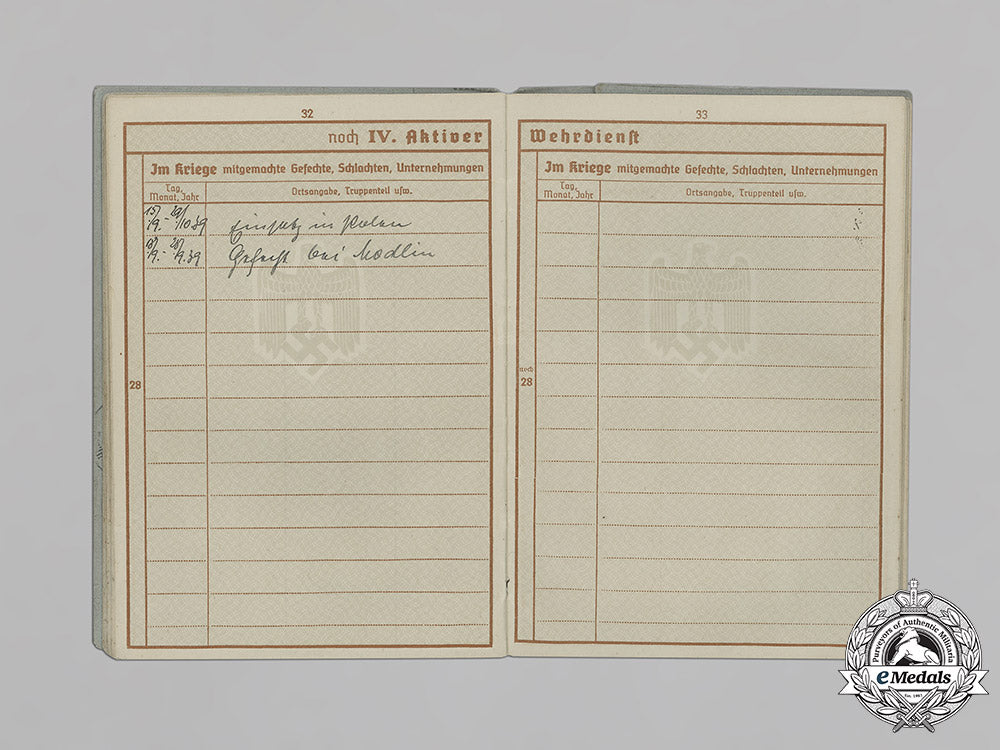 32
noch IV. Aktiver
Im Kriege mitgemachte Gefechte, Schlachten, Unternehmungen
Tag, Monat, Jahr
Ortsangabe, Truppenteil usw.
Einsatz in Polen
Gefecht bei Modlin
28
33
Wehrdienst
Im Kriege mitgemachte Gefechte, Schlachten, Unternehmungen
Tag, Monat, Jahr
Ortsangabe, Truppenteil usw.
noch
28
Purveyors of Authentic Militaria
eMedals